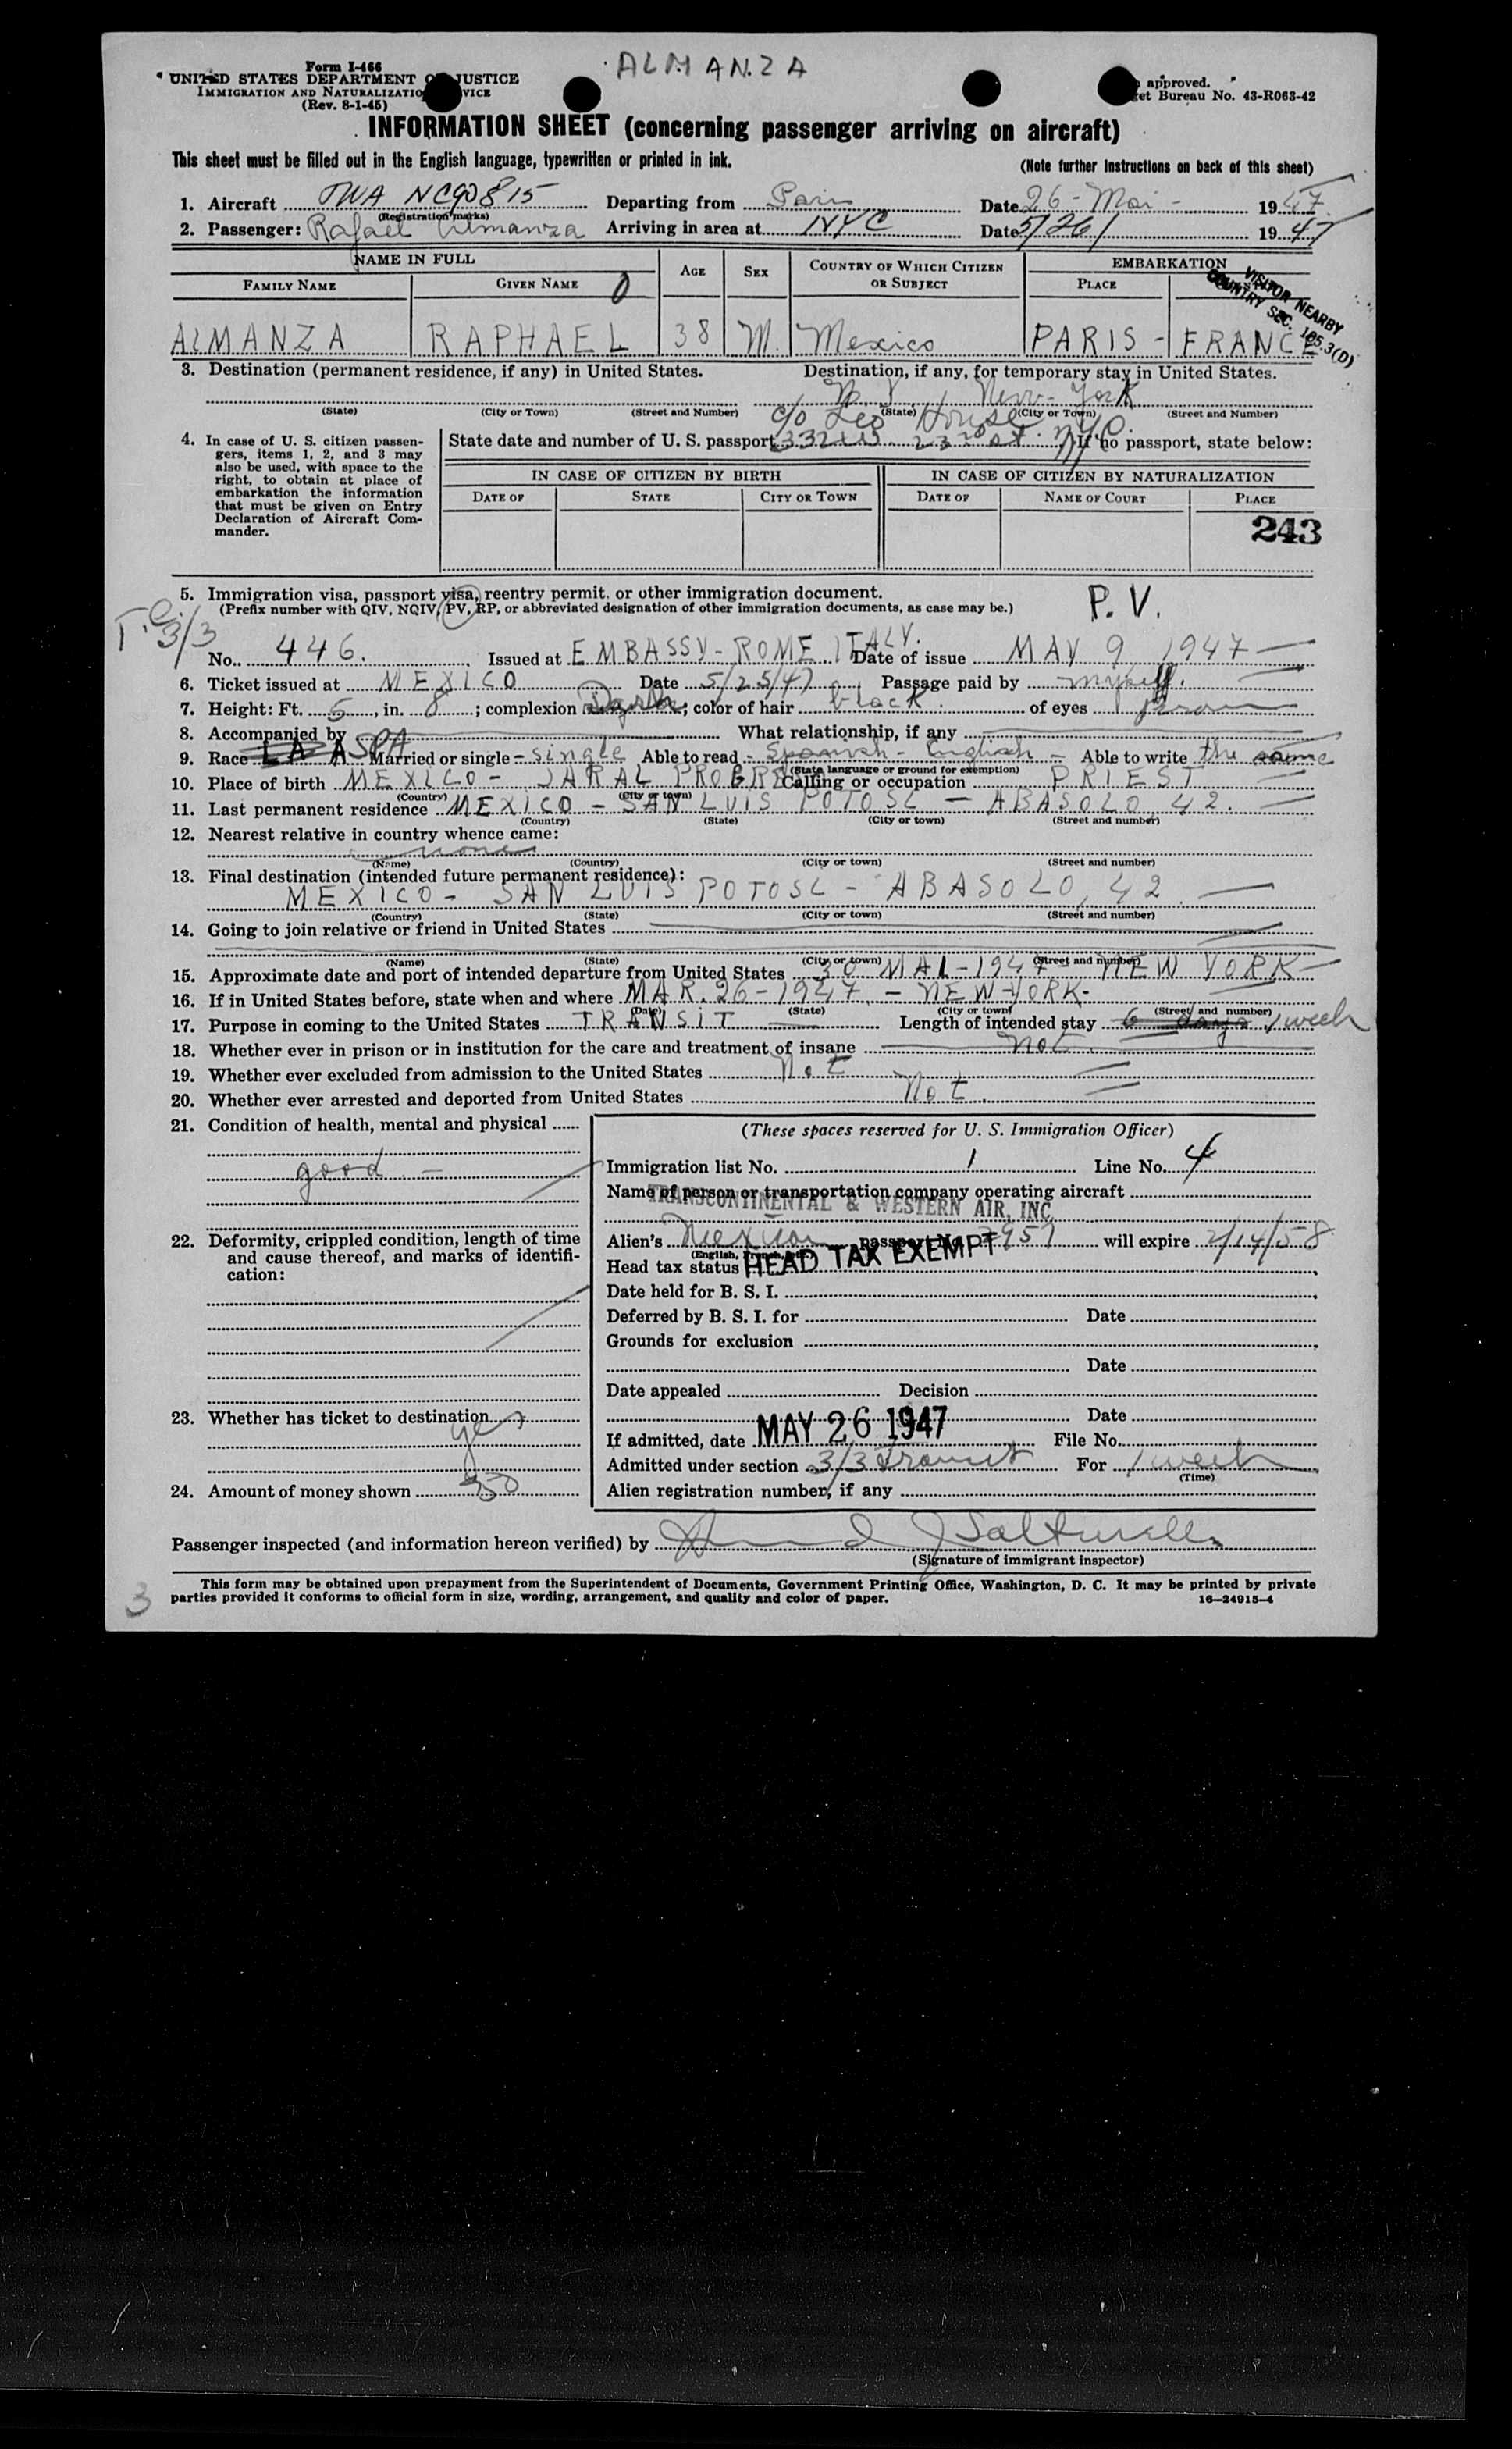 ALMANZA
Form I-466
UNITED STATES DEPARTMENT OF JUSTICE
IMMIGRATION AND NATURALIZATION SERVICE
(Rev. 8-1-45)
approved.
Bureau No. 43-R063-42
INFORMATION SHEET (concerning passenger arriving on aircraft)
This sheet must be filled out in the English language, typewritten or printed in ink. (Note further instructions on back of this sheet)
1. Aircraft TWA NC90815 Departing from Paris Date 26 - Mai - 1947
(Registration marks)
2. Passenger: Rafael Almanza Arriving in area at NYC Date 5/26/ 1947
NAME IN FULL AGE SEX COUNTRY OF WHICH CITIZEN OR SUBJECT EMBARKATION
FAMILY NAME GIVEN NAME PLACE
VISITOR NEARBY
COUNTRY SEC. 3(D)
ALMANZA RAPHAEL 38 M. Mexico PARIS - FRANCE
3. Destination (permanent residence, if any) in United States. Destination, if any, for temporary stay in United States.
N.Y. New-York
(State) (City or Town) (Street and Number) (State) (City or Town) (Street and Number)
c/o Leo House
4. In case of U. S. citizen passengers, items 1, 2, and 3 may also be used, with space to the right, to obtain at place of embarkation the information that must be given on Entry Declaration of Aircraft Commander.
State date and number of U. S. passport 332 W. 23rd St. NYC. If no passport, state below:
IN CASE OF CITIZEN BY BIRTH IN CASE OF CITIZEN BY NATURALIZATION
DATE OF STATE CITY OR TOWN DATE OF NAME OF COURT PLACE
243
5. Immigration visa, passport visa, reentry permit, or other immigration document.
(Prefix number with QIV, NQIV, PV, RP, or abbreviated designation of other immigration documents, as case may be.) P.V.
3/3
No. 446. Issued at EMBASSY - ROME ITALY. Date of issue MAY 9 1947
6. Ticket issued at MEXICO Date 5/25/47 Passage paid by myself.
7. Height: Ft. 5, in. 8; complexion Dark; color of hair black of eyes Brown
8. Accompanied by What relationship, if any
9. Race SPA Married or single - single Able to read - Spanish - English - Able to write the same
(State language or ground for exemption)
10. Place of birth MEXICO - JARAL PROGRESO Calling or occupation PRIEST
(Country) (City or town)
11. Last permanent residence MEXICO - SAN LUIS POTOSI - ABASOLO 42.
(Country) (State) (City or town) (Street and number)
12. Nearest relative in country whence came:
none
(Name) (Country) (City or town) (Street and number)
13. Final destination (intended future permanent residence):
MEXICO - SAN LUIS POTOSI - ABASOLO, 42
(Country) (State) (City or town) (Street and number)
14. Going to join relative or friend in United States
(Name) (State) (City or town) (Street and number)
15. Approximate date and port of intended departure from United States 30 MAI - 1947 NEW YORK
16. If in United States before, state when and where MAR. 26 - 1947 - NEW-YORK -
(Date) (State) (City or town) (Street and number)
17. Purpose in coming to the United States TRANSIT Length of intended stay 6 days 1 week
18. Whether ever in prison or in institution for the care and treatment of insane not
19. Whether ever excluded from admission to the United States Not
20. Whether ever arrested and deported from United States Not
21. Condition of health, mental and physical
good -
22. Deformity, crippled condition, length of time and cause thereof, and marks of identification:
23. Whether has ticket to destination
yes
24. Amount of money shown
(These spaces reserved for U. S. Immigration Officer)
Immigration list No. 1 Line No. 4
Name of person or transportation company operating aircraft
TRANSCONTINENTAL & WESTERN AIR, INC.
Alien's Mexican passport No. 7957 will expire 2/14/58
Head tax status HEAD TAX EXEMPT
Date held for B. S. I.
Deferred by B. S. I. for Date
Grounds for exclusion
Date
Date appealed Decision
Date
If admitted, date MAY 26 1947 File No.
Admitted under section 3/3 Transit For 1 week
(Time)
Alien registration number, if any
Passenger inspected (and information hereon verified) by
(Signature of immigrant inspector)
This form may be obtained upon prepayment from the Superintendent of Documents, Government Printing Office, Washington, D. C. It may be printed by private
parties provided it conforms to official form in size, wording, arrangement, and quality and color of paper. 16—24915-4
3